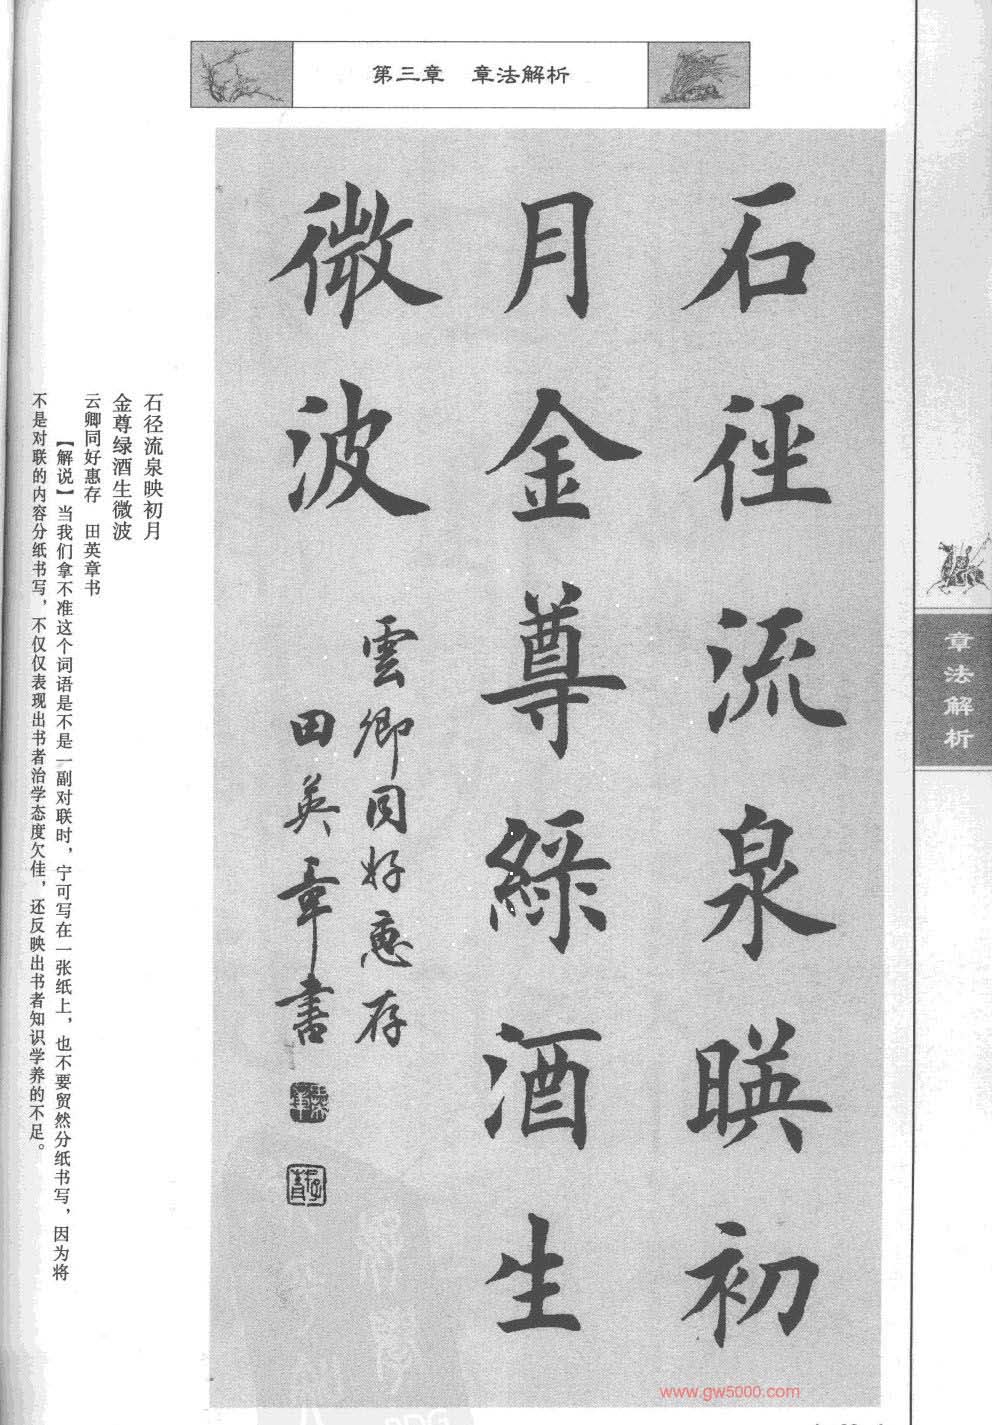 第三章　章法解析
石徑流泉暎初
月金尊綠酒生
微波
雲卿同好惠存
田英章書
章法解析
石径流泉映初月
金尊绿酒生微波
云卿同好惠存　田英章书
【解说】当我们拿不准这个词语是不是一副对联时，宁可写在一张纸上，也不要贸然分纸书写，因为将
不是对联的内容分纸书写，不仅仅表现出书者治学态度欠佳，还反映出书者知识学养的不足。
www.gw5000.com